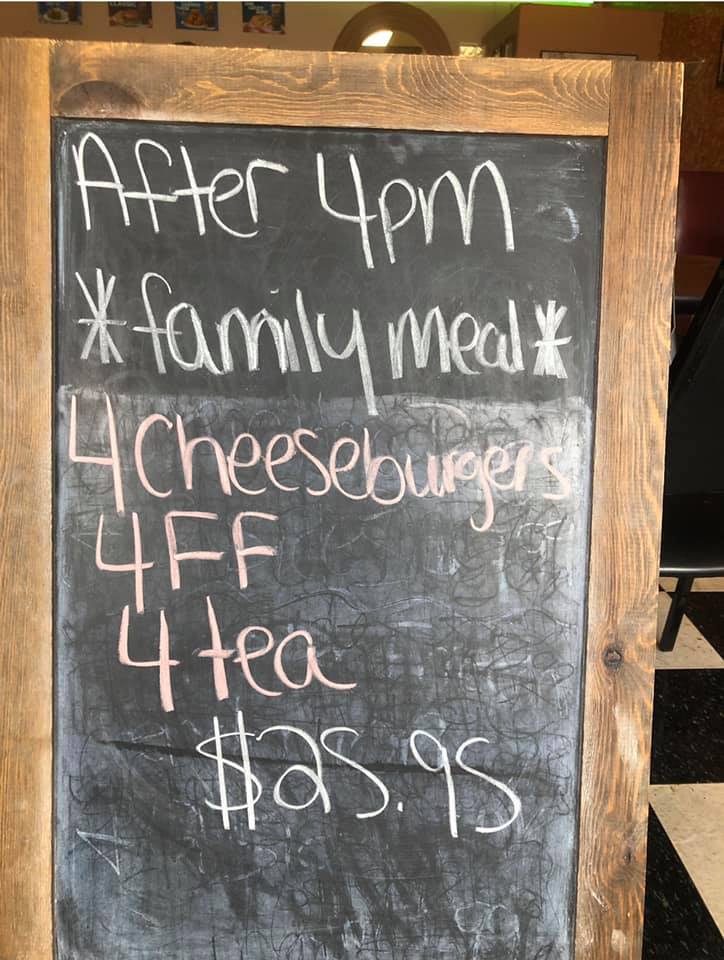 After 4pm
*family meal*
4 Cheeseburgers
4 FF
4 tea
$25.95